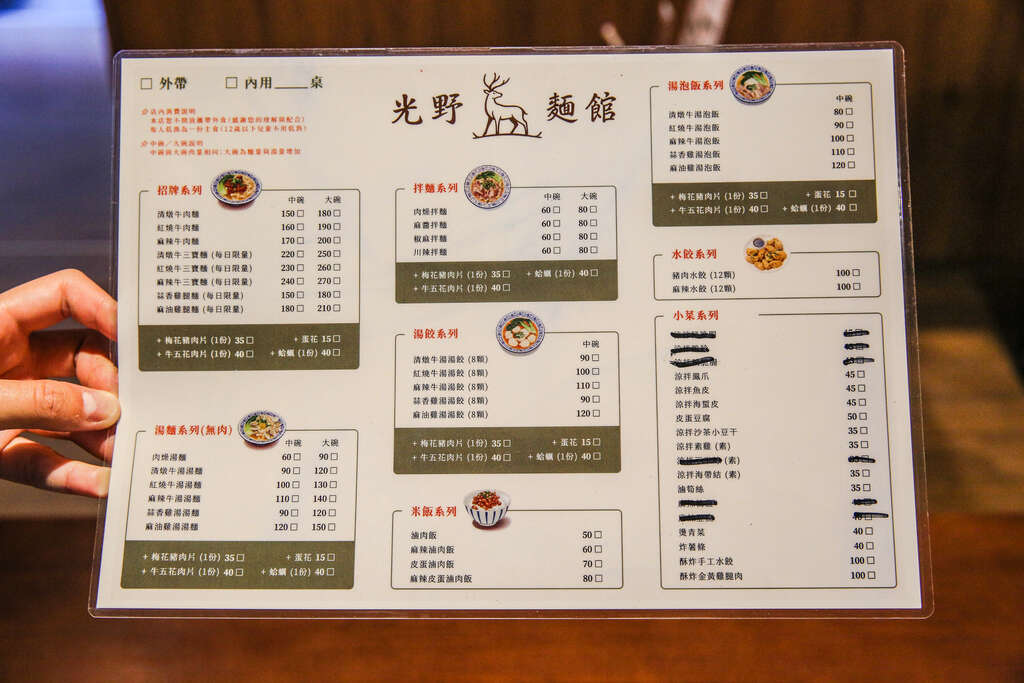 □ 外帶 □ 內用____桌
店內消費說明
本店恕不開放攜帶外食(感謝您的理解與配合)
每人低消為一份主食(12歲以下兒童不用低消)
中碗／大碗說明
中碗與大碗肉量相同；大碗為麵量與湯量增加
光野 麵館
招牌系列
中碗 大碗
清燉牛肉麵 150 □ 180 □
紅燒牛肉麵 160 □ 190 □
麻辣牛肉麵 170 □ 200 □
清燉牛三寶麵 (每日限量) 220 □ 250 □
紅燒牛三寶麵 (每日限量) 230 □ 260 □
麻辣牛三寶麵 (每日限量) 240 □ 270 □
蒜香雞腿麵 (每日限量) 150 □ 180 □
麻油雞腿麵 (每日限量) 180 □ 210 □
+ 梅花豬肉片 (1份) 35 □ + 蛋花 15 □
+ 牛五花肉片 (1份) 40 □ + 蛤蠣 (1份) 40 □
湯麵系列(無肉)
中碗 大碗
肉燥湯麵 60 □ 90 □
清燉牛湯湯麵 90 □ 120 □
紅燒牛湯湯麵 100 □ 130 □
麻辣牛湯湯麵 110 □ 140 □
蒜香雞湯湯麵 90 □ 120 □
麻油雞湯湯麵 120 □ 150 □
+ 梅花豬肉片 (1份) 35 □ + 蛋花 15 □
+ 牛五花肉片 (1份) 40 □ + 蛤蠣 (1份) 40 □
拌麵系列
中碗 大碗
肉燥拌麵 60 □ 80 □
麻醬拌麵 60 □ 80 □
椒麻拌麵 60 □ 80 □
川辣拌麵 60 □ 80 □
+ 梅花豬肉片 (1份) 35 □ + 蛤蠣 (1份) 40 □
+ 牛五花肉片 (1份) 40 □
湯餃系列
中碗
清燉牛湯湯餃 (8顆) 90 □
紅燒牛湯湯餃 (8顆) 100 □
麻辣牛湯湯餃 (8顆) 110 □
蒜香雞湯湯餃 (8顆) 90 □
麻油雞湯湯餃 (8顆) 120 □
+ 梅花豬肉片 (1份) 35 □ + 蛋花 15 □
+ 牛五花肉片 (1份) 40 □ + 蛤蠣 (1份) 40 □
米飯系列
滷肉飯 50 □
麻辣滷肉飯 60 □
皮蛋滷肉飯 70 □
麻辣皮蛋滷肉飯 80 □
湯泡飯系列
中碗
清燉牛湯泡飯 80 □
紅燒牛湯泡飯 90 □
麻辣牛湯泡飯 100 □
蒜香雞湯泡飯 110 □
麻油雞湯泡飯 120 □
+ 梅花豬肉片 (1份) 35 □ + 蛋花 15 □
+ 牛五花肉片 (1份) 40 □ + 蛤蠣 (1份) 40 □
水餃系列
豬肉水餃 (12顆) 100 □
麻辣水餃 (12顆) 100 □
小菜系列
涼拌鳳爪 45 □
涼拌魚皮 45 □
涼拌海蜇皮 45 □
皮蛋豆腐 50 □
涼拌沙茶小豆干 35 □
涼拌素雞 (素) 35 □
(素)
涼拌海帶結 (素) 35 □
滷筍絲 35 □
燙青菜 40 □
炸薯條 40 □
酥炸手工水餃 100 □
酥炸金黃雞腿肉 100 □